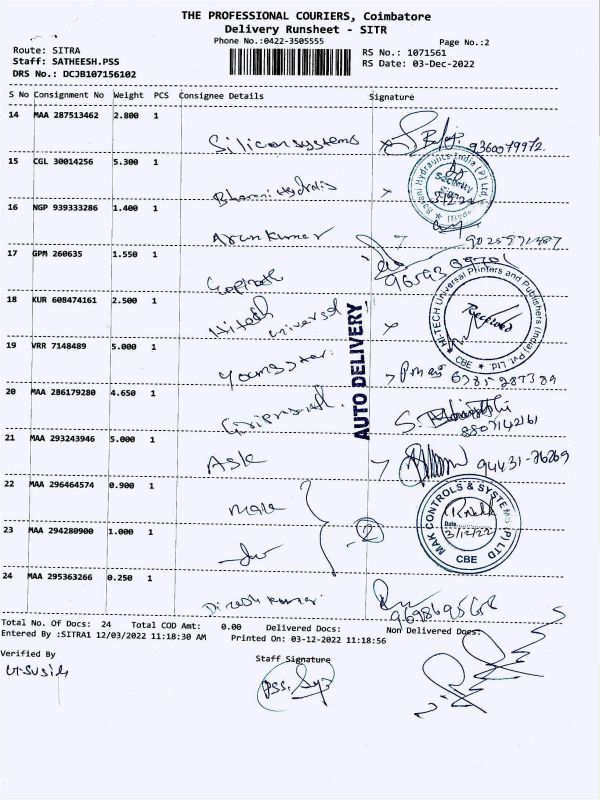 THE PROFESSIONAL COURIERS, Coimbatore
Delivery Runsheet - SITR
Phone No.:0422-3505555
Page No.:2
Route: SITRA
RS No.: 1071561
Staff: SATHEESH.PSS
RS Date: 03-Dec-2022
DRS No.: DCJB107156102
S No Consignment No Weight PCS Consignee Details Signature
14 MAA 287513462 2.800 1
Silicon systems 9360079972
15 CGL 30014256 5.300 1
Bharani Hydrolis
Security
16 NGP 939333286 1.400 1
Arun Kumar
17 GPM 260635 1.550 1
Gopinath
18 KUR 608474161 2.500 1
Hitech universal
HI-TECH Universal Printers and Publishers (India) Pvt. Ltd
CBE
Received
19 VRR 7148489 5.000 1
AUTO DELIVERY
6385287389
20 MAA 286179280 4.650 1
8807142161
21 MAA 293243946 5.000 1
Ask 94431-76269
22 MAA 296464574 0.900 1
MAK CONTROLS & SYSTEMS (P) LTD
CBE
Date
3/12/22
23 MAA 294280900 1.000 1
2
24 MAA 295363266 0.250 1
Dinesh Kumar
Total No. Of Docs: 24 Total COD Amt: 0.00 Delivered Docs: Non Delivered Docs:
Entered By :SITRA1 12/03/2022 11:18:30 AM Printed On: 03-12-2022 11:18:56
Verified By
Staff Signature